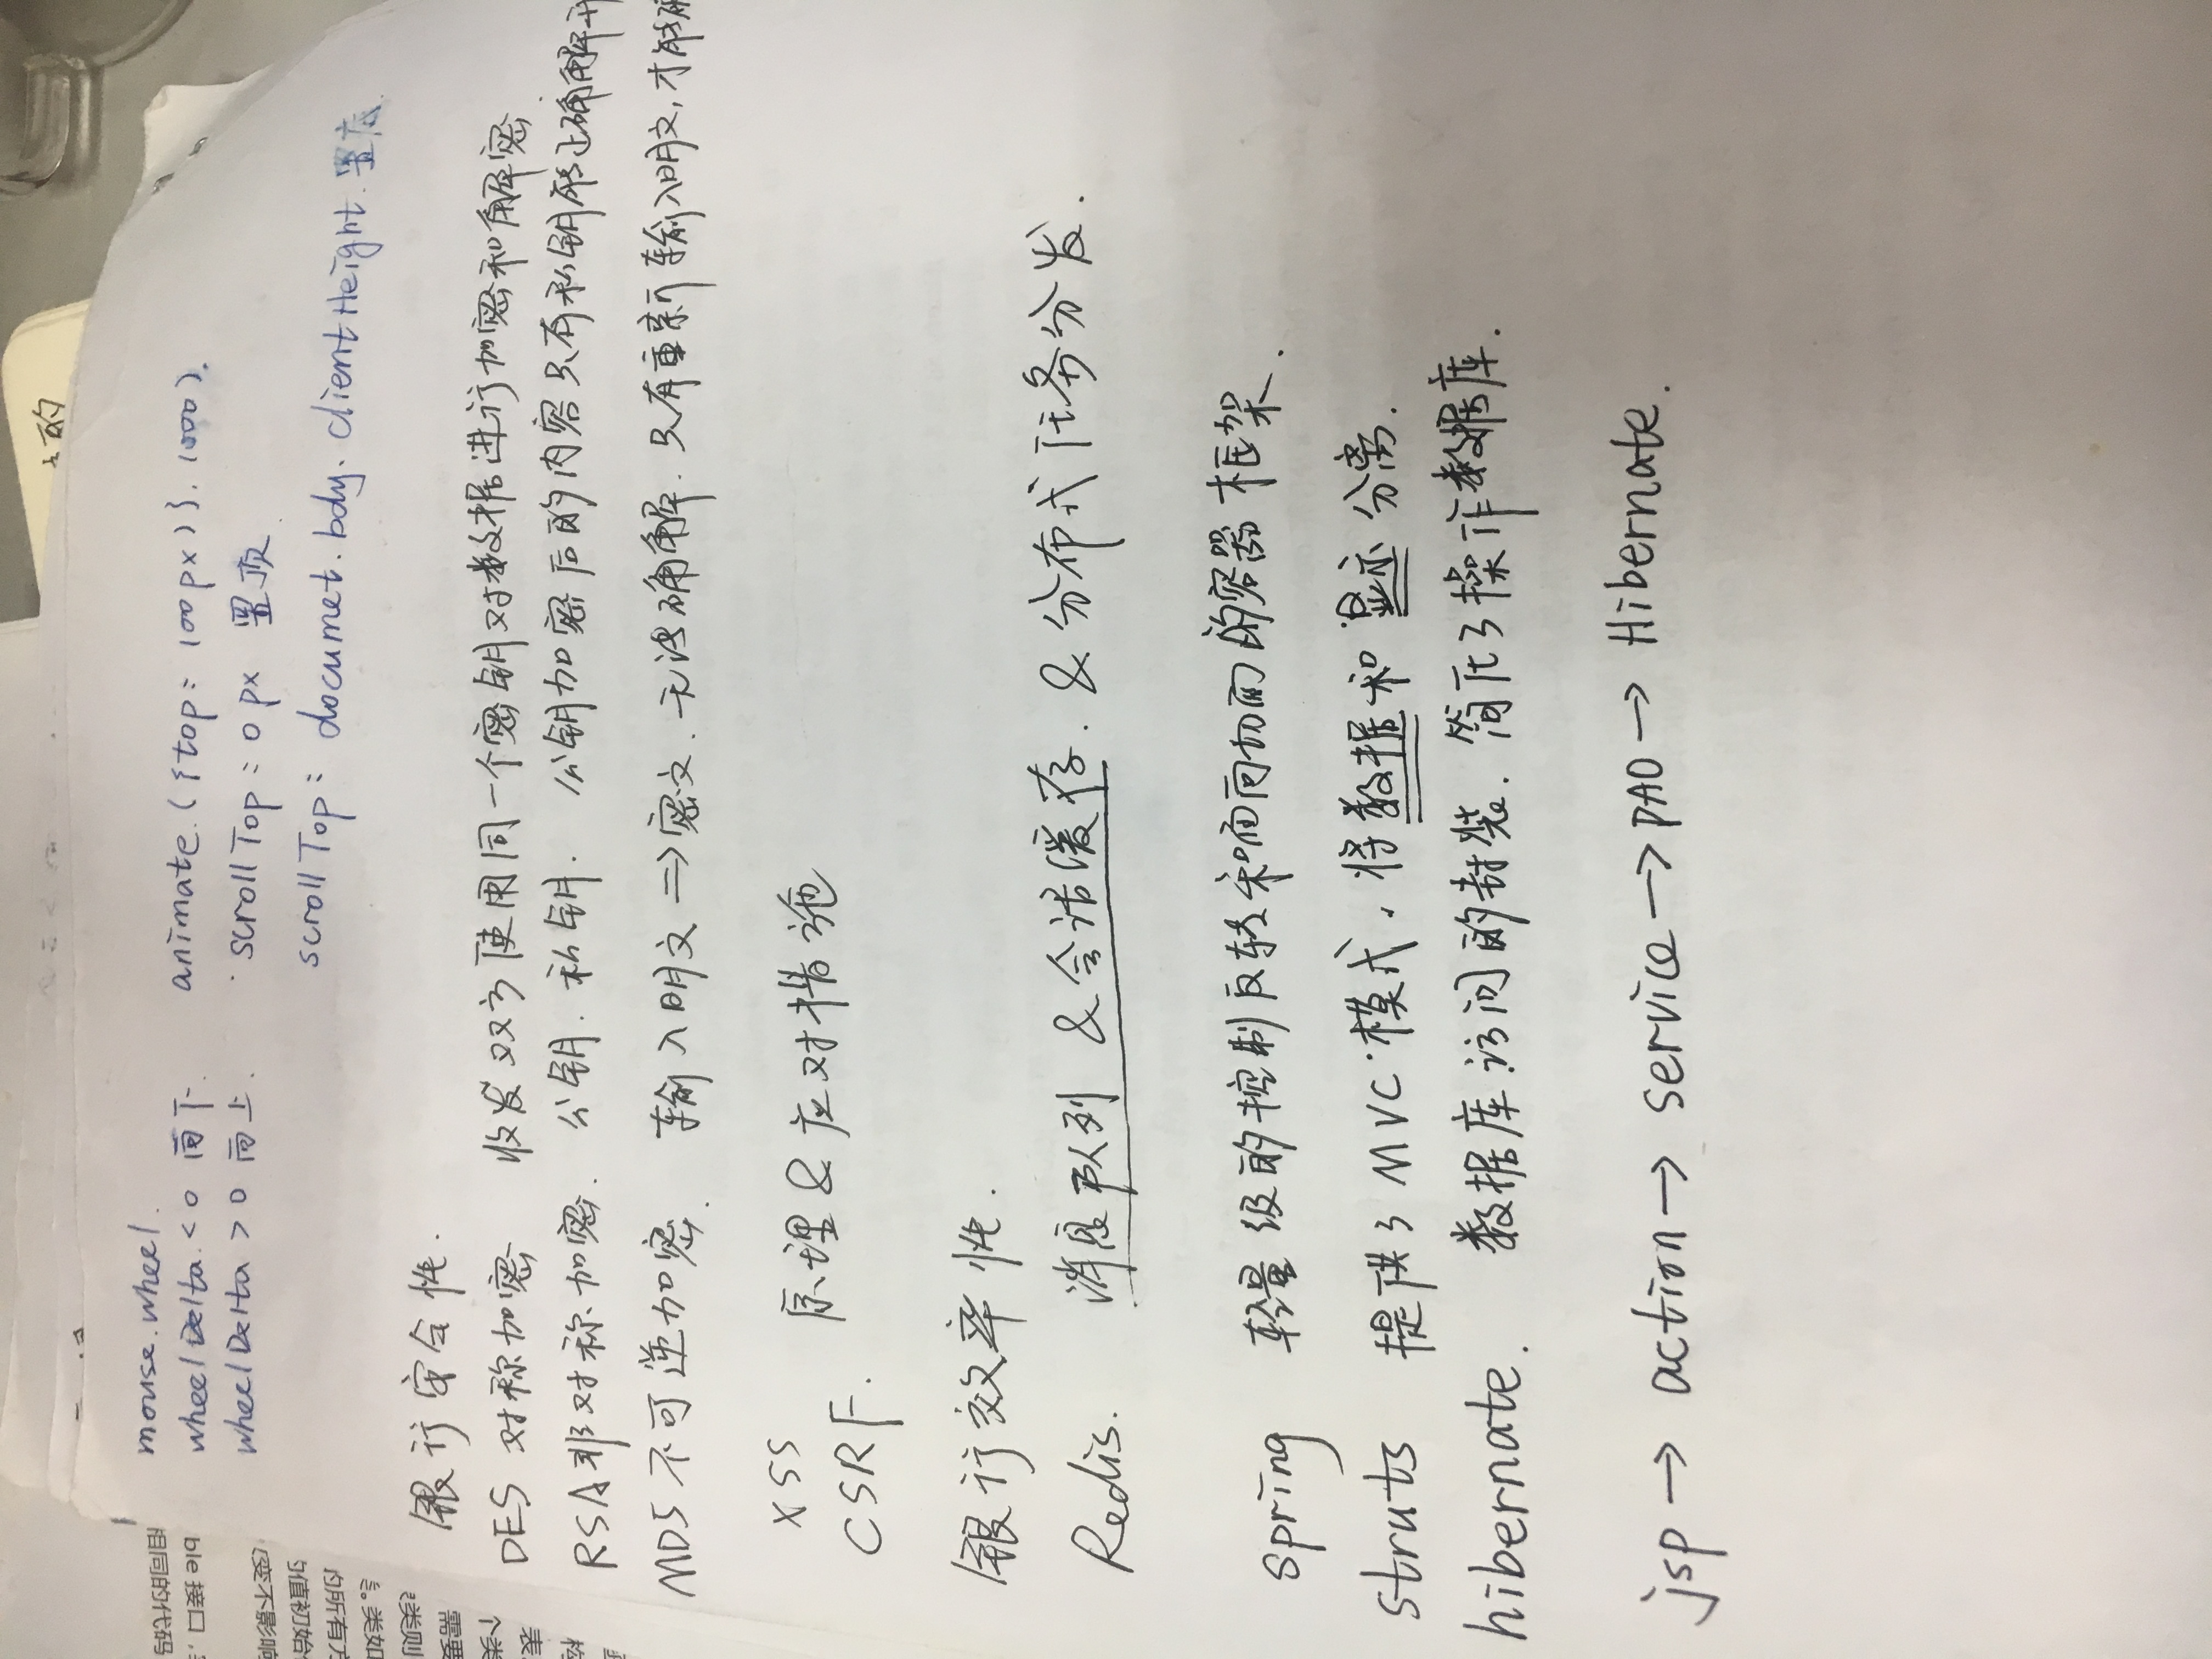 的
mouse.wheel.
wheelDelta. < 0 向下.
wheelDelta > 0 向上.
animate.({top: 100px)}. 1000).
scrollTop: 0px 置顶
scrollTop: documet.bdy.clientHeight.置底.
银行安全性.
DES 对称加密 收发双方使用同一个密钥对数据进行加密和解密.
RSA非对称加密. 公钥. 私钥. 公钥加密后的内容只有私钥 正确解开
MD5 不可逆加密. 输入明文 => 密文. 无法确解. 只有重新输入明文, 才能
XSS
CSRF. 原理 & 应对措施
银行效率性.
Redis. 消息队列 & 会话缓存. & 分布式任务分发.
spring 轻量级的控制反转和面向切面的容器框架.
struts 提供了MVC模式. 将数据和显示分离.
hibernate. 数据库访问的封装. 简化了操作数据库.
jsp → action → service → DAO → Hibernate.
相同的代码
ble 接口,
变不影响
值初始
的所有方
。类如
类则
需要
个类
表